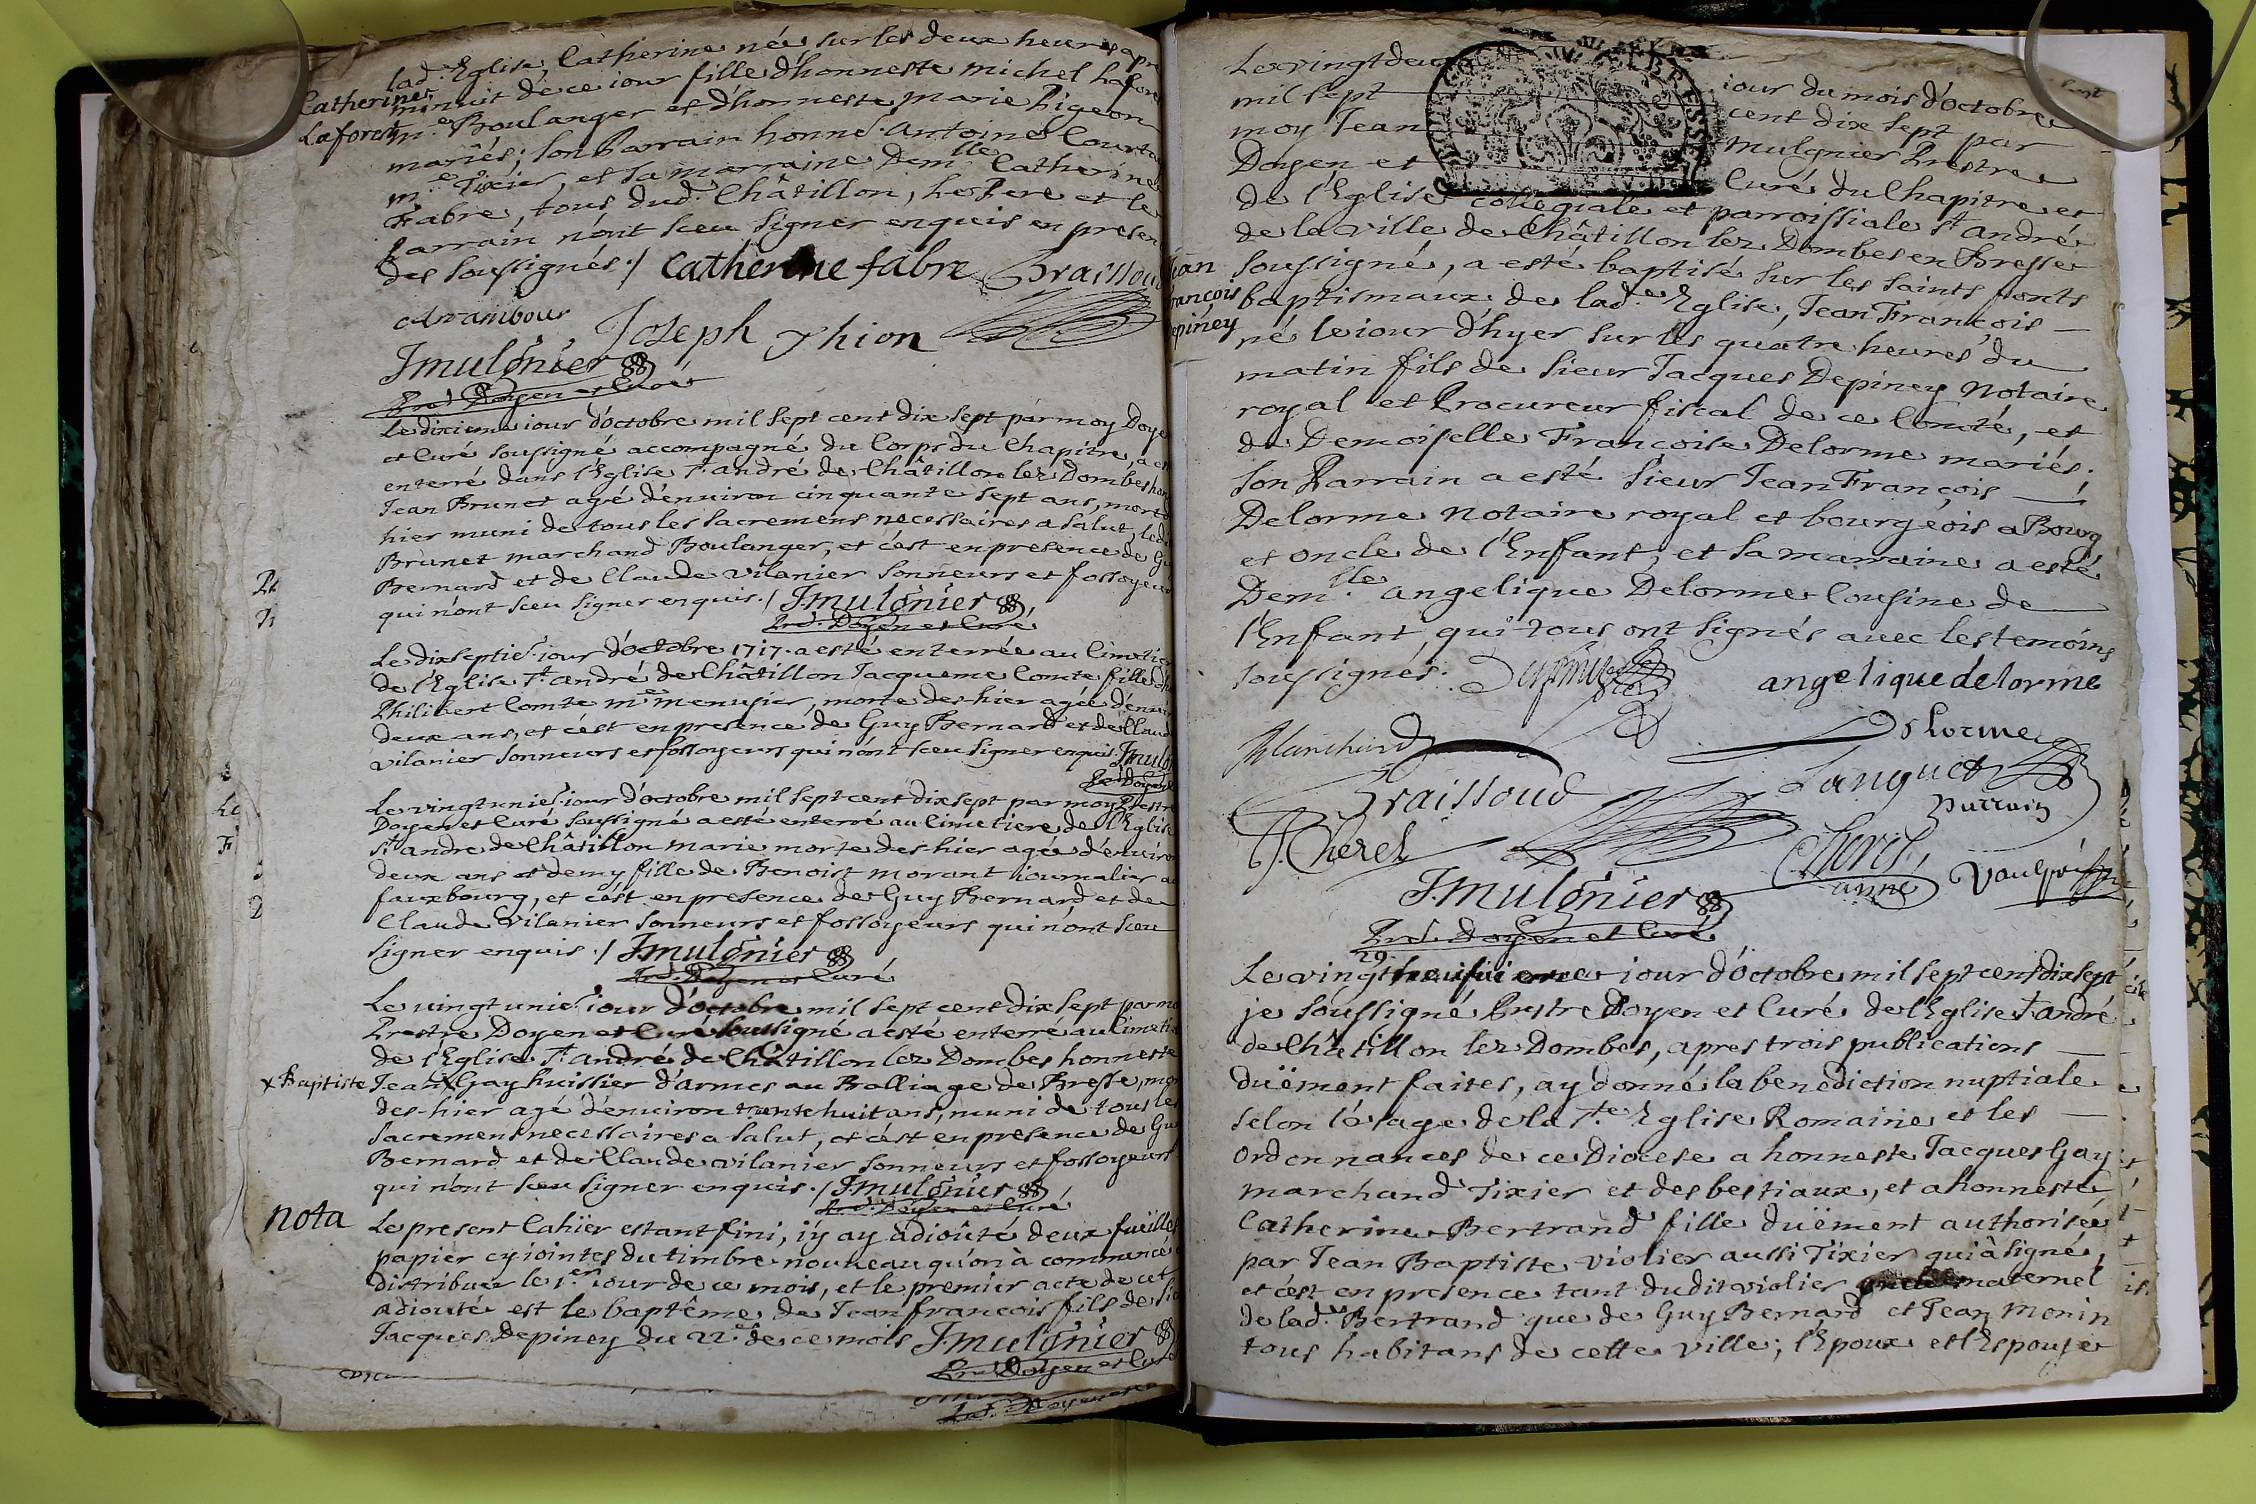 lad.e Eglise Catherine née sur les deux heures apre
Catherine
Laforest
minuit de ce iour fille d'honneste michel Lafore
m.e Boulanger et d'honneste marie Pigeon
mariés; son Parrain honne. antoine Courte
m.e Tixier, et sa marraine Dem.lle Catherine
Fabre, tous dud. Châtillon, les Pere et le
Parrain n'ont sceu signer enquis en presen
des soussignés./ Catherine fabre Braissoud
Joseph Thion
Jmulonier
Pre. Doyen et Curé
Le dixieme iour d'octobre mil sept cent dix sept par moy Doye
et Curé soussigné accompagné du Corps du Chapitre, a e
enterré dans l'Eglise St. andré de Châtillon lez Dombes hon
Jean Brunet agé d'enuiron cinquante sept ans, mort
hier muni de tous les sacremens necessaires a salut, led
Brunet marchand Boulanger, et c'est en presence de Gu
Bernard et de Claude vilanier sonneurs et fossoyeur
qui n'ont sceu signer enquis./ Jmulonier
Pre. Doyen et Curé
Le dixseptie. iour d'octobre 1717. a esté enterrée au Cimetier
de l'Eglise St. andré de Châtillon Jacqueme Comte fille d'h
Philibert Comte m.e menusier, morte des-hier agée d'enuir
deux ans, et c'est en presence de Guy Bernard et de Claud
vilanier sonneurs et fossoyeurs qui n'ont sceu signer enquis. Jmulo
Pre. Doyen
Le vingtunie. iour d'octobre mil sept cent dix sept par moy Prestre
Doyen et Curé soussigné a esté enterré au Cimetiere de l'Eglise
St. andre de Châtillon marie morte des hier agée d'enuiron
deux ans et demy fille de Benoist morant iournalier au
fauxbourg, et c'est en presence de Guy Bernard et de
Claude vilanier sonneurs et fossoyeurs qui n'ont sceu
signer enquis./ Jmulonier
Pre. Doyen et Curé
Le vingtunie. iour d'octobre mil sept cent dix sept par mo
Prestre Doyen et Curé soussigné a esté enterré au Cimetie
de l'Eglise St. andré de Châtillon lez Dombes honneste
x Baptiste
Jean x Gay huissier d'armes au Balliage de Bresse, mor
des-hier agé d'enuiron trente huit ans, muni de tous les
sacremens necessaires a salut, et c'est en presence de Gu
Bernard et de Claude vilanier sonneurs et fossoyeurs
qui n'ont sceu signer enquis./ Jmulonier
Pre. Doyen et Curé
nota
Le present Cahier estant fini, i'y ay adiouté deux fueilles
papier cy iointes du timbre nouueau qu'on à commencé
distribuer le 1.er iour de ce mois, et le premier acte de cet
adiouté est le baptême de Jean françois fils de Si
Jacques Depiney du 22.e de ce mois Jmulonier
Pre. Doyen et Curé
Le vingt deux iour du mois d'octobre
mil sept cent dix sept par
moy Jean Mulonier Prestre
Doyen et Curé du Chapitre et
de l'Eglise collegiale et parroissiale St andré
de la ville de Châtillon lez Dombes en Bresse
Jean
François
Depiney
soussigné, a esté baptisé sur les saints fonts
baptismaux de lad.e Eglise, Jean François —
né le iour d'hyer sur les quatre heures du
matin fils de Sieur Jacques Depiney Notaire
royal et Procureur fiscal de ce Comté, et
de Demoiselle Françoise Delorme mariés;
Son Parrain a esté Sieur Jean François —
Delorme Notaire royal et bourgeois a Bourg
et oncle de l'Enfant; et sa marraine a esté
Dem.lle angelique Delorme Cousine de
l'Enfant, qui tous ont signés auec les temoins
soussignés.
angelique delorme
Blanchard
Delorme
Parrain
Braissoud
Languet
J. Cherel
Cherel
anne
Jmulonier
Pre. Doyen et Curé
29.
Le vingtneufuieme iour d'octobre mil sept cent dix sept
je soussigné Prestre Doyen et Curé de l'Eglise St andré
de Châtillon lez Dombes, apres trois publications —
duëment faites, ay donné la benediction nuptiale
selon l'usage de la Ste. Eglise Romaine et les —
ordonnances de ce Diocese a honneste Jacques Gay
marchand Tixier et des bestiaux, et a honneste
Catherine Bertrand fille duëment authorisée
par Jean Baptiste violier aussi Tixier qui â signé,
et c'est en presence tant dudit violier oncle maternel
de lad. Bertrand que de Guy Bernard et Jean Monin
tous habitans de cette ville; l'Epoux et l'Espouse